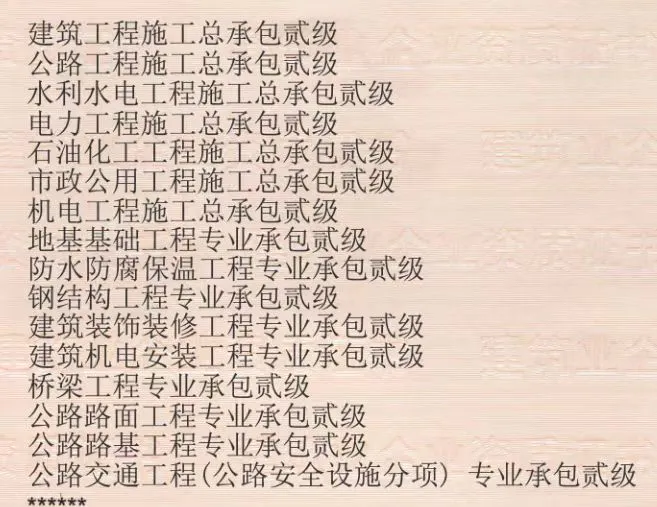 建筑工程施工总承包贰级
公路工程施工总承包贰级
水利水电工程施工总承包贰级
电力工程施工总承包贰级
石油化工工程施工总承包贰级
市政公用工程施工总承包贰级
机电工程施工总承包贰级
地基基础工程专业承包贰级
防水防腐保温工程专业承包贰级
钢结构工程专业承包贰级
建筑装饰装修工程专业承包贰级
建筑机电安装工程专业承包贰级
桥梁工程专业承包贰级
公路路面工程专业承包贰级
公路路基工程专业承包贰级
公路交通工程(公路安全设施分项) 专业承包贰级
******